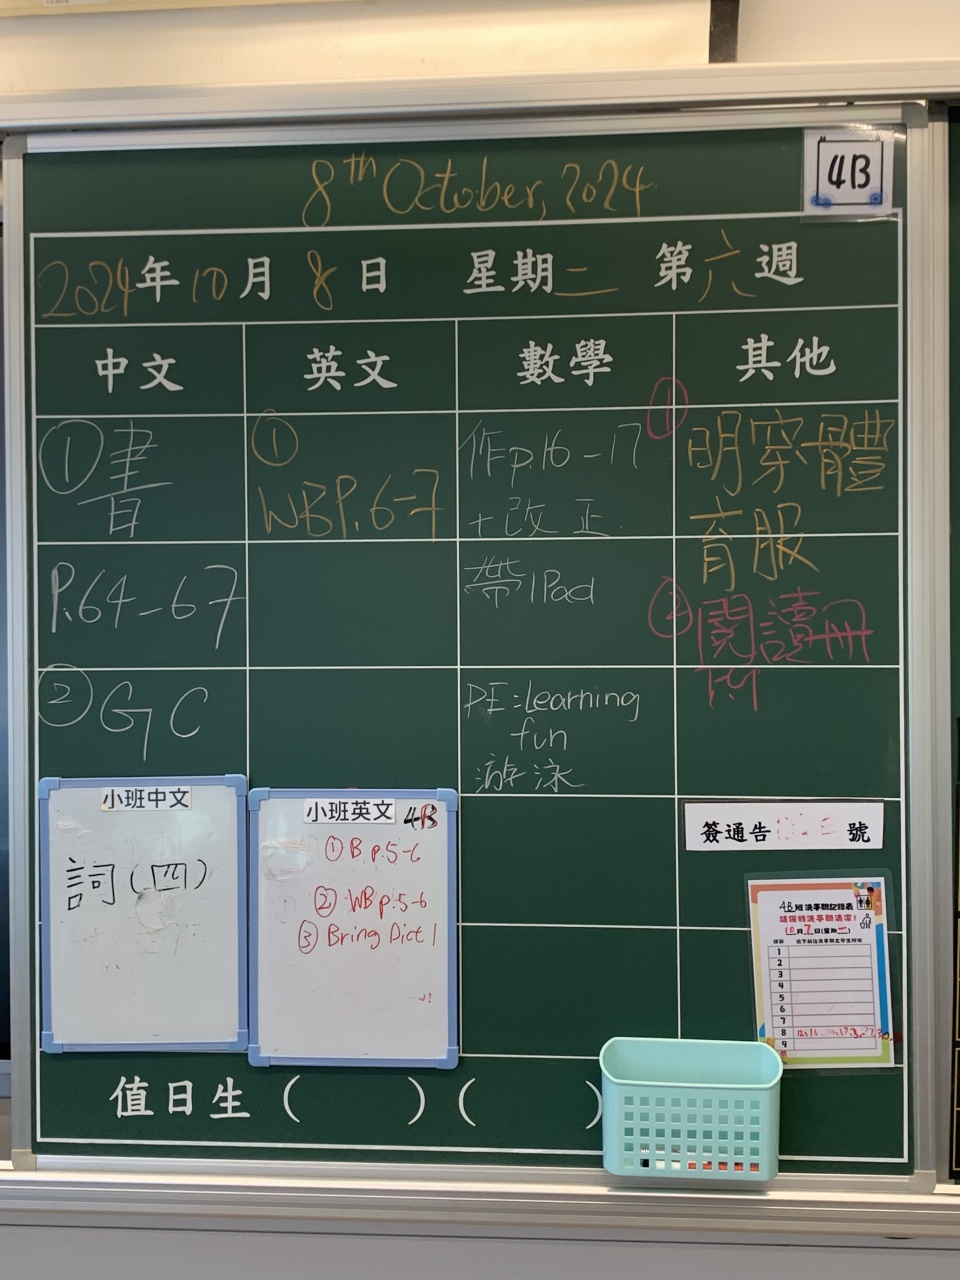 8th October, 2024
4B
2024年10月8日 星期二 第六週
中文 英文 數學 其他
① 書
P.64-67
② GC
①
WBP.6-7
作p.16-17
+改正
帶IPad
PE:Learning
fun
游泳
① 明穿體
育服
② 閱讀冊
小班中文
詞(四)
小班英文 4B
① B p.5-6
② WB p.5-6
③ Bring Dict 1
簽通告 號
4B班洗手間記錄表
請保持洗手間清潔!
10月7日(星期一)
1
2
3
4
5
6
7
8
9
值日生 ( ) ( )